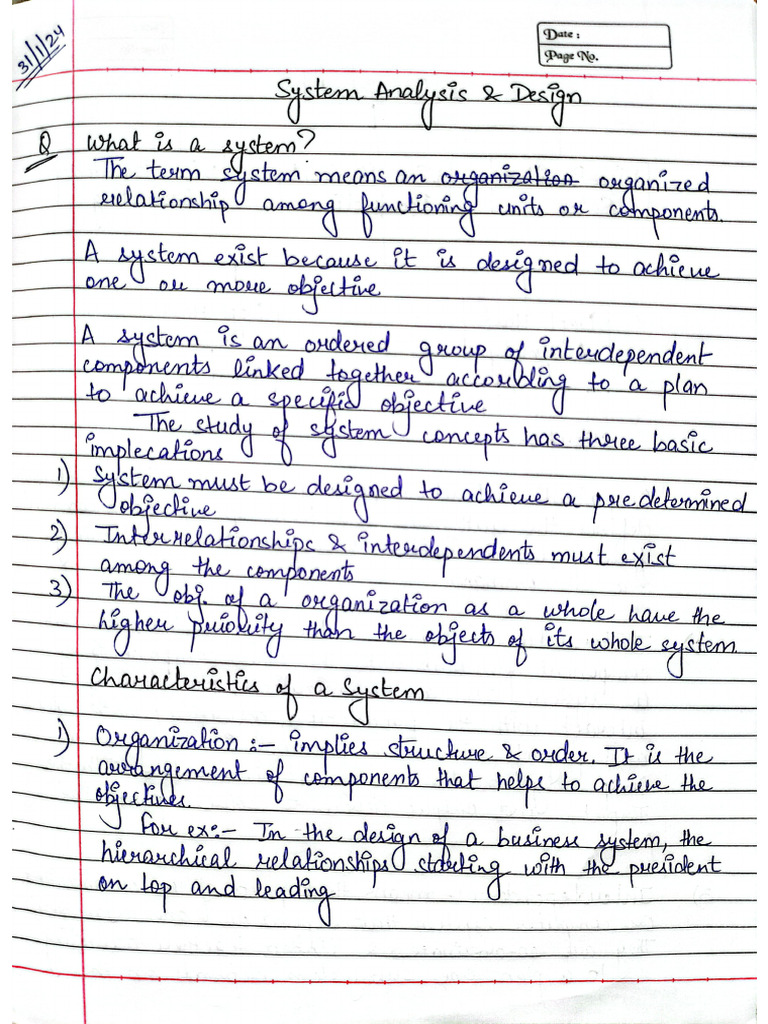 31/1/24
Date :
Page No.
System Analysis & Design
Q What is a system?
The term system means an organization organized
relationship among functioning units or components.
A system exist because it is designed to achieve
one or more objective
A system is an ordered group of interdependent
components linked together according to a plan
to achieve a specific objective
The study of system concepts has three basic
implecations
1) System must be designed to achieve a predetermined
objective
2) Interrelationships & interdependents must exist
among the components
3) The obj. of a organization as a whole have the
higher priority than the objects of its whole system.
Characteristics of a System
1) Organization :- implies structure & order. It is the
arrangement of components that helps to achieve the
objectives.
For ex:- In the design of a business system, the
hierarchical relationships starting with the president
on top and leading